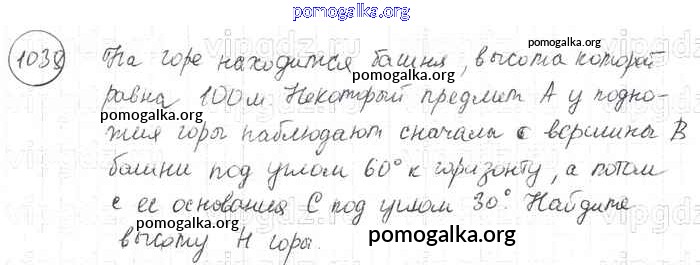 pomogalka.org
1038 На горе находится башня, высота которой
pomogalka.org
pomogalka.org
равна 100м. Некоторый предмет А у подно-
жия горы наблюдают сначала с вершины В
pomogalka.org
башни под углом 60° к горизонту, а потом
pomogalka.org
с ее основания С под углом 30°. Найдите
высоту Н горы.
pomogalka.org